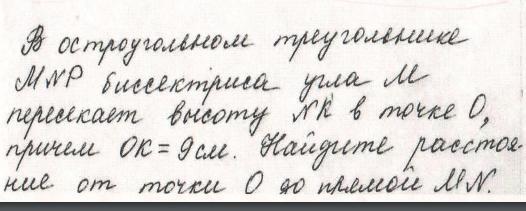 В остроугольном треугольнике
MNP биссектриса угла M
пересекает высоту NK в точке O,
причем OK = 9 см. Найдите расстоя-
ние от точки O до прямой MN.